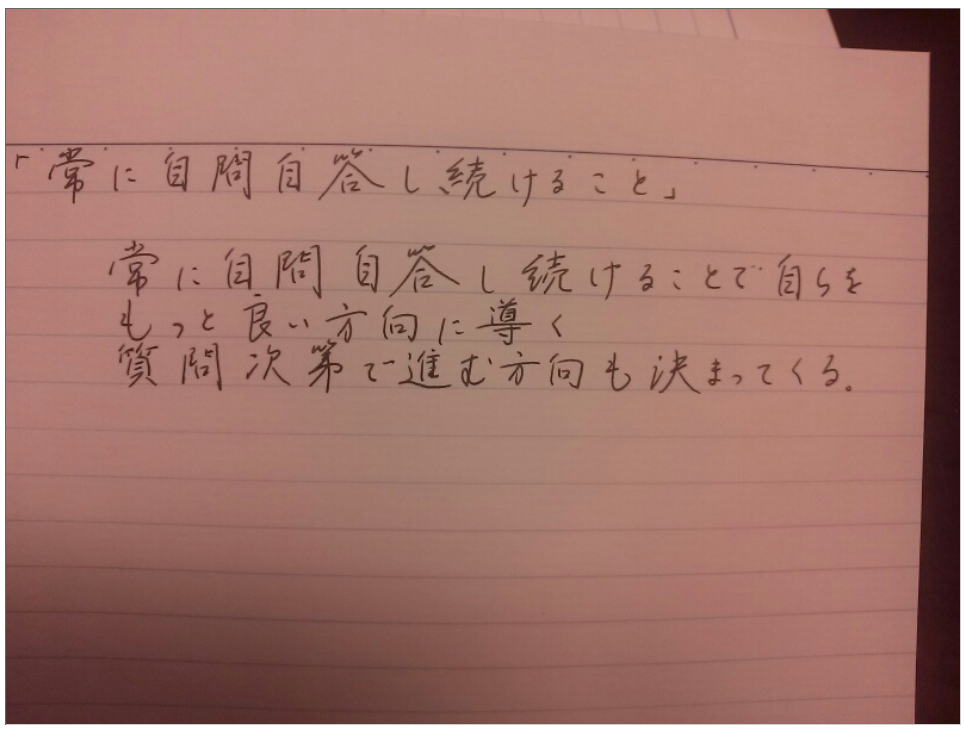 「常に自問自答し続けること」
常に自問自答し続けることで自らを
もっと良い方向に導く
質問次第で進む方向も決まってくる。